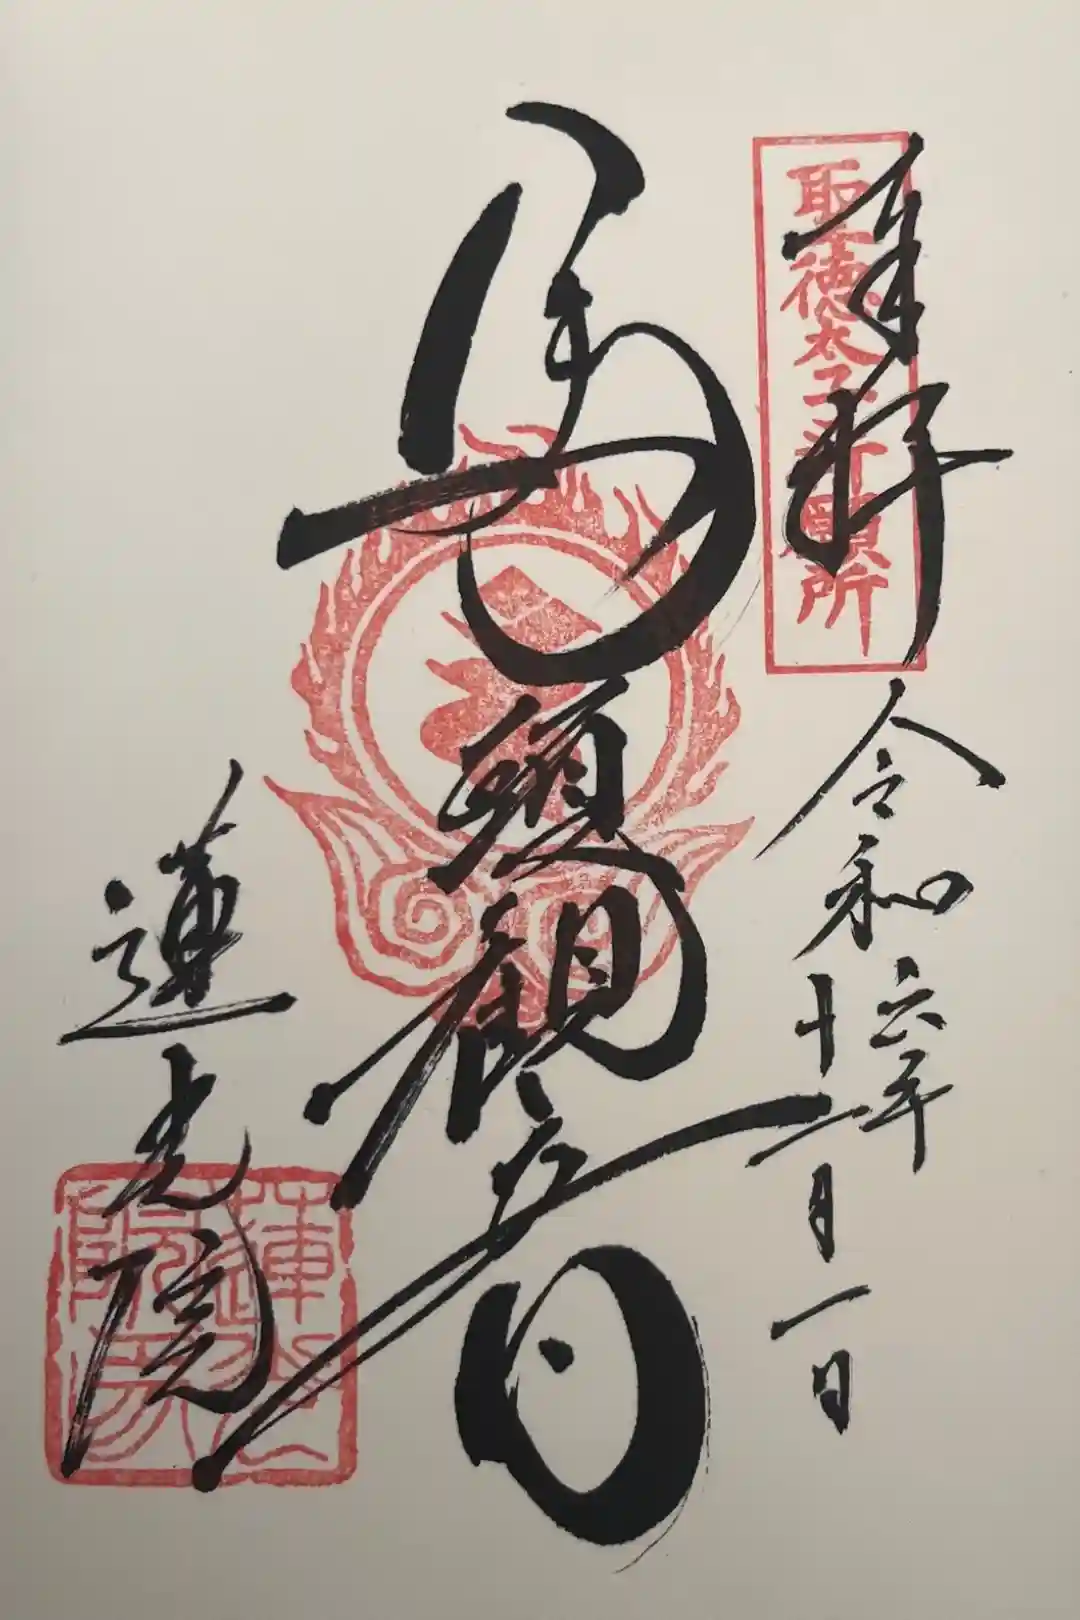 聖徳太子祈願所
奉拝
令和六年
十二月一日
馬頭観音
蓮光院